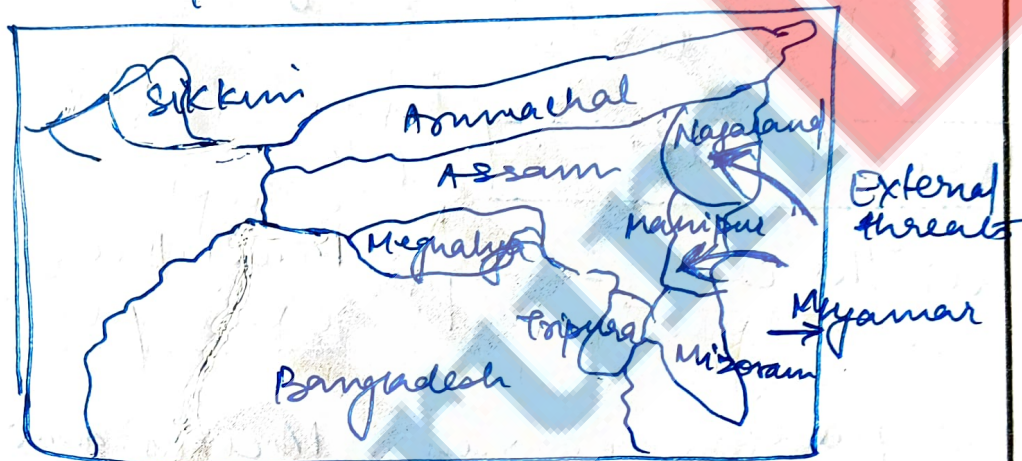 Sikkim
Arunachal
Nagaland
Assam
External
threats
Manipur
Meghalya
Myamar
Tripura
Mizoram
Bangladesh